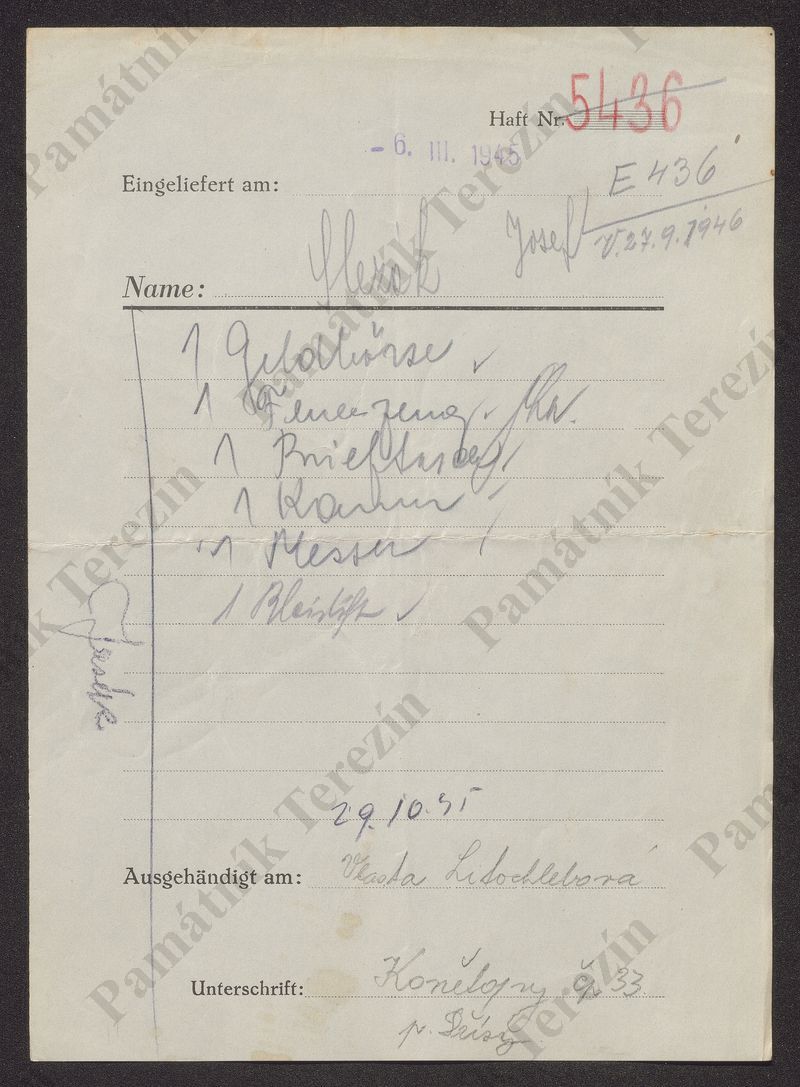 Haft Nr. 5436
- 6. III. 1945
Eingeliefert am: E 436
V. 27.9.1946
Name: Josef
1 Geldbörse
1 Feuerzeug
1 Brieftasche
1 Kamm
1 Messer
1 Bleistift
29.10.45
Ausgehändigt am: Vlasta Litochlebová
Unterschrift: Konětopy čp 33.
p. Dřísy
Památník Terezín